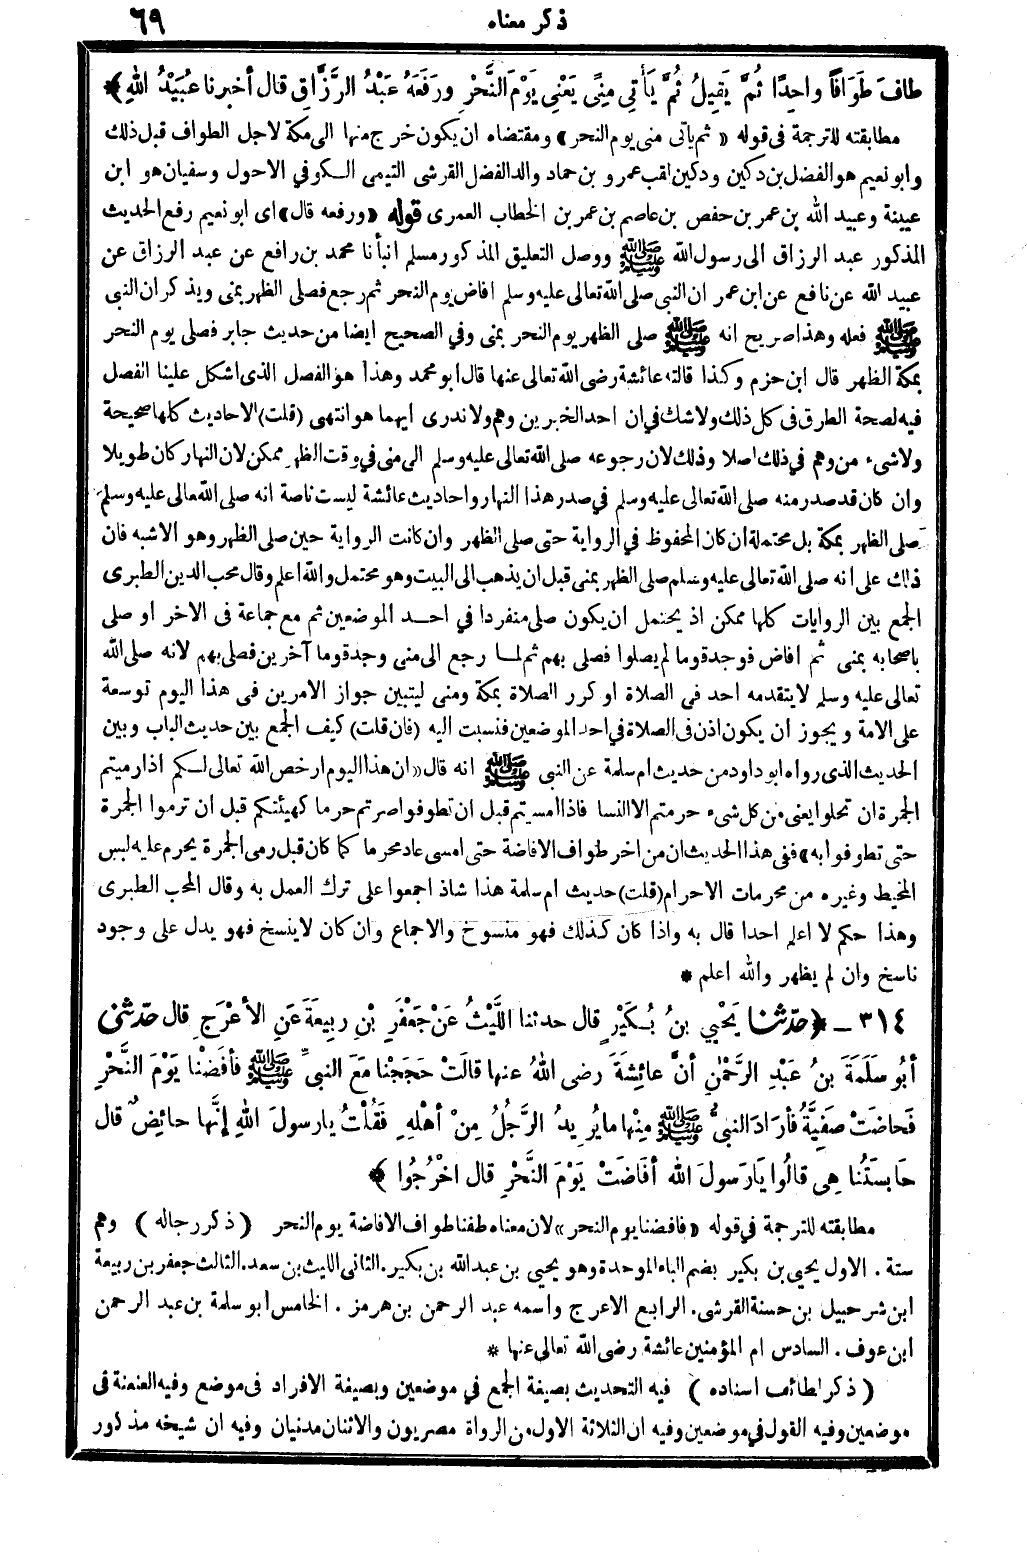 ذكر معناه ٦٩
طافَ طَوَافًا واحِدًا ثُمَّ يَقِيلُ ثُمَّ يَأتِي مِنًى يَعْنِي يَوْمَ النَّحْرِ ورَفَعَهُ عَبْدُ الرَّزَّاقِ قال أخبرنا عُبَيْدُ اللهِ ﴾
مطابقته للترجمة فى قوله «ثم يأتى منى يوم النحر» ومقتضاه ان يكون خرج منها الى مكة لاجل الطواف قبل ذلك
وابو نعيم هو الفضل بن دكين ودكين لقب عمرو بن حماد والد الفضل القرشى التيمى الكوفي الاحول وسفيان هو ابن
عيينة وعبيد الله بن عمر بن حفص بن عاصم بن عمر بن الخطاب العمرى قوله «ورفعه قال» اى ابو نعيم رفع الحديث
المذكور عبد الرزاق الى رسول الله ﷺ ووصل التعليق المذكور مسلم انبأنا محمد بن رافع عن عبد الرزاق عن
عبيد الله عن نافع عن ابن عمر ان النبى صلى الله تعالى عليه وسلم افاض يوم النحر ثم رجع فصلى الظهر بمنى ويذكر ان النبى
ﷺ فعله وهذا صريح انه ﷺ صلى الظهر يوم النحر بمنى وفي الصحيح ايضا من حديث جابر فصلى يوم النحر
بمكة الظهر قال ابن حزم وكذا قالته عائشة رضى الله تعالى عنها قال ابو محمد وهذا هو الفصل الذى اشكل علينا الفصل
فيه لصحة الطرق فى كل ذلك ولا شك في ان احد الخبرين وهم ولا ندرى ايهما هو انتهى (قلت) الاحاديث كلها صحيحة
ولا شىء من وهم في ذلك اصلا وذلك لان رجوعه صلى الله تعالى عليه وسلم الى منى في وقت الظهر ممكن لان النهار كان طويلا
وان كان قد صدر منه صلى الله تعالى عليه وسلم في صدر هذا النهار واحاديث عائشة ليست ناصة انه صلى الله تعالى عليه وسلم
صلى الظهر بمكة بل محتملة ان كان المحفوظ في الرواية حتى صلى الظهر وان كانت الرواية حين صلى الظهر وهو الاشبه فان
ذلك على انه صلى الله تعالى عليه وسلم صلى الظهر بمنى قبل ان يذهب الى البيت وهو محتمل والله اعلم وقال محب الدين الطبرى
الجمع بين الروايات كلها ممكن اذ يحتمل ان يكون صلى منفردا في احد الموضعين ثم مع جماعة فى الاخر او صلى
باصحابه بمنى ثم افاض فوجد قوما لم يصلوا فصلى بهم ثم لما رجع الى منى وجد قوما آخرين فصلى بهم لانه صلى الله
تعالى عليه وسلم لا يتقدمه احد فى الصلاة او كرر الصلاة بمكة ومنى ليتبين جواز الامرين فى هذا اليوم توسعة
على الامة ويجوز ان يكون اذن فى الصلاة في احد الموضعين فنسبت اليه (فان قلت) كيف الجمع بين حديث الباب وبين
الحديث الذى رواه ابو داود من حديث ام سلمة عن النبى ﷺ انه قال «ان هذا اليوم ارخص الله تعالى لكم اذا رميتم
الجمرة ان تحلوا يعنى من كل شىء حرمتم الا النسا فاذا امسيتم قبل ان تطوفوا صرتم حرما كهيئتكم قبل ان ترموا الجمرة
حتى تطوفوا به» ففى هذا الحديث ان من اخر طواف الافاضة حتى امسى عاد محرما كما كان قبل رمى الجمرة يحرم عليه لبس
المخيط وغيره من محرمات الاحرام (قلت) حديث ام سلمة هذا شاذ اجمعوا على ترك العمل به وقال المحب الطبرى
وهذا حكم لا اعلم احدا قال به واذا كان كذلك فهو منسوخ والاجماع وان كان لا ينسخ فهو يدل على وجود
ناسخ وان لم يظهر والله اعلم *
٣١٤ - ﴿حدثنا يَحْيِي بنُ بُكَيْرٍ قال حدثنا اللَّيْثُ عَنْ جَعْفَرِ بْنِ ربِيعَةَ عَنِ الأعْرَجِ قال حدثنى
أبُو سَلَمَةَ بنُ عَبْدِ الرَّحْمٰنِ أنَّ عائِشَةَ رضى اللهُ عنها قالَتْ حَجَجْنا مَعَ النبىِّ ﷺ فأفَضْنا يَوْمَ النَّحْرِ
فَحاضَتْ صَفِيَّةُ فأرَادَ النبىُّ ﷺ مِنْها ما يُرِيدُ الرَّجُلُ مِنْ أهْلِهِ فَقُلْتُ يا رسولَ اللهِ إنَّها حائِضٌ قال
حَابِسَتُنا هِى قالُوا يَا رَسولَ الله أفَاضَتْ يَوْمَ النَّحْرِ قال اخْرُجُوا ﴾
مطابقته للترجمة في قوله «فافضنا يوم النحر» لان معناه طفنا طواف الافاضة يوم النحر (ذكر رجاله) وهم
ستة . الاول يحيى بن بكير بضم الباء الموحدة وهو يحيى بن عبد الله بن بكير. الثانى الليث بن سعد. الثالث جعفر بن ربيعة
ابن شرحبيل بن حسنة القرشى. الرابع الاعرج واسمه عبد الرحمن بن هرمز . الخامس ابو سلمة بن عبد الرحمن
ابن عوف . السادس ام المؤمنين عائشة رضى الله تعالى عنها *
(ذكر لطائف اسناده) فيه التحديث بصيغة الجمع في موضعين وبصيغة الافراد فى موضع وفيه العنعنة فى
موضعين وفيه القول في موضعين وفيه ان الثلاثة الاول من الرواة مصريون والاثنان مدنيان وفيه ان شيخه مذكور